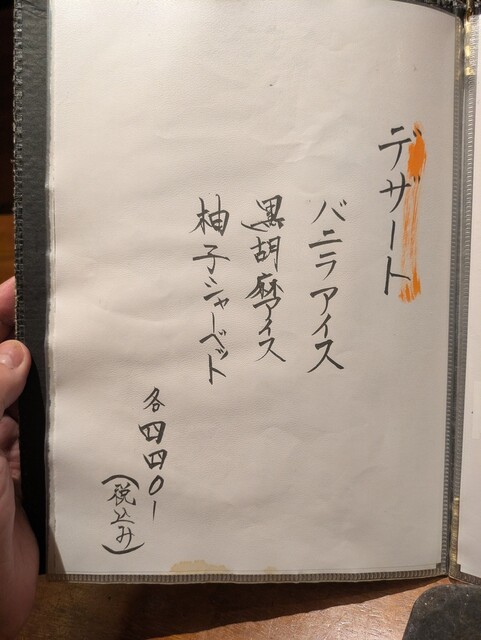 デザート
バニラアイス
黒胡麻アイス
柚子シャーベット
各四四〇ー
(税込み)